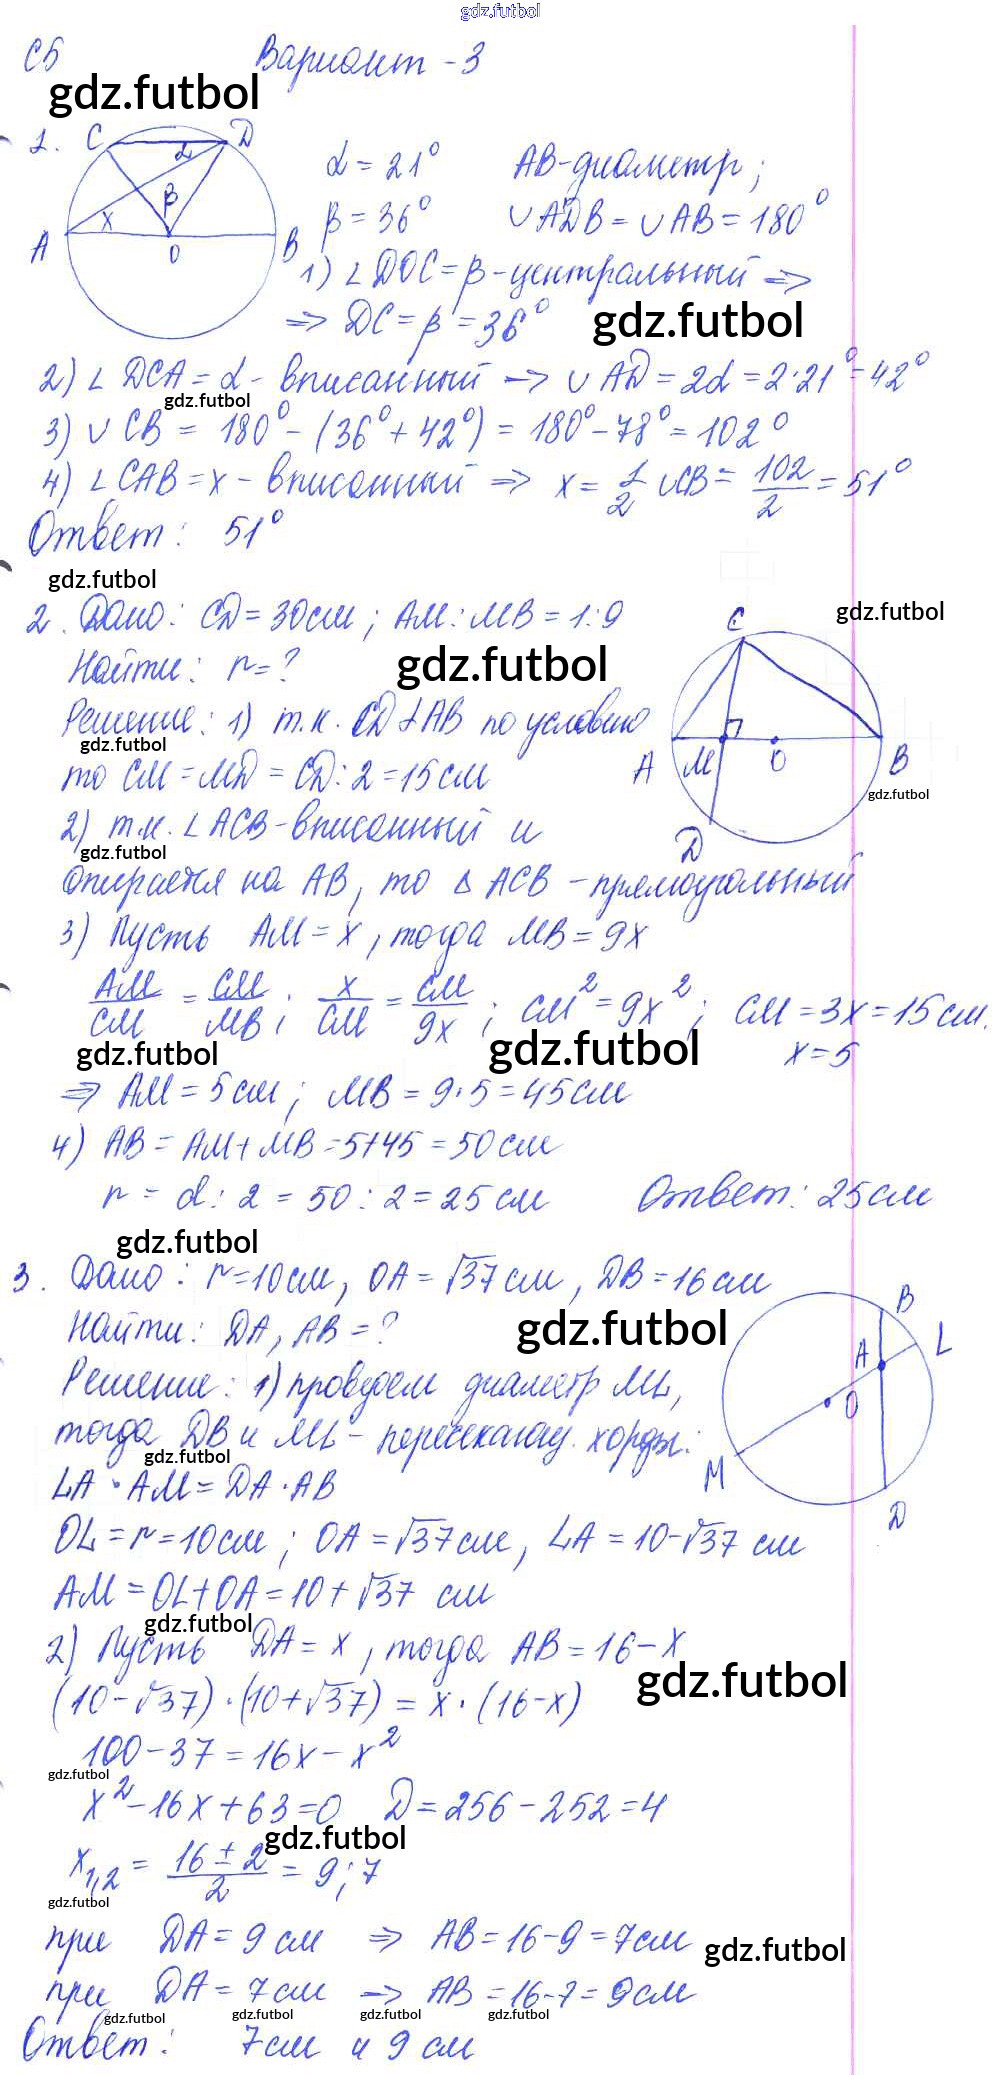 gdz.futbol
С5 Вариант - 3
gdz.futbol
1. C D α β x A O B
α = 21° AB - диаметр;
β = 36° ∪ADB = ∪AB = 180°
1) ∠DOC = β - центральный ⇒
⇒ DC = β = 36° gdz.futbol
2) ∠DCA = α - вписанный → ∪AD = 2α = 2·21° = 42°
gdz.futbol
3) ∪CB = 180° - (36° + 42°) = 180° - 78° = 102°
4) ∠CAB = x - вписанный ⇒ x = 1/2 ∪CB = 102/2 = 51°
Ответ: 51°
gdz.futbol
2. Дано: CD = 30см; AM:MB = 1:9
gdz.futbol
C A M O B D
Найти: r = ? gdz.futbol
Решение: 1) т.к. CD ⊥ AB по условию
gdz.futbol
то CM = MD = CD:2 = 15см
gdz.futbol
2) т.к. ∠ACB - вписанный и
gdz.futbol
опирается на AB, то △ACB - прямоугольный
3) Пусть AM = x, тогда MB = 9x
AM/CM = CM/MB; x/CM = CM/9x; CM² = 9x²; CM = 3x = 15см.
gdz.futbol gdz.futbol x = 5
⇒ AM = 5см; MB = 9·5 = 45см
4) AB = AM + MB = 5+45 = 50см
r = d:2 = 50:2 = 25см Ответ: 25см
gdz.futbol
3. Дано: r = 10см, OA = √37см, DB = 16см
Найти: DA, AB = ? gdz.futbol
B L A O M D
Решение: 1) проведем диаметр ML,
тогда DB и ML - пересекающ. хорды:
gdz.futbol
LA · AM = DA · AB
OL = r = 10см; OA = √37см, LA = 10-√37 см
AM = OL + OA = 10 + √37 см
gdz.futbol
2) Пусть DA = x, тогда AB = 16 - x
gdz.futbol
(10 - √37)·(10+√37) = x·(16-x)
100 - 37 = 16x - x²
gdz.futbol
x² - 16x + 63 = 0 D = 256 - 252 = 4
gdz.futbol
x₁,₂ = 16 ± 2/2 = 9; 7
gdz.futbol
при DA = 9см ⇒ AB = 16-9 = 7см
gdz.futbol
при DA = 7см → AB = 16-7 = 9см
gdz.futbol gdz.futbol gdz.futbol gdz.futbol
Ответ: 7см и 9см